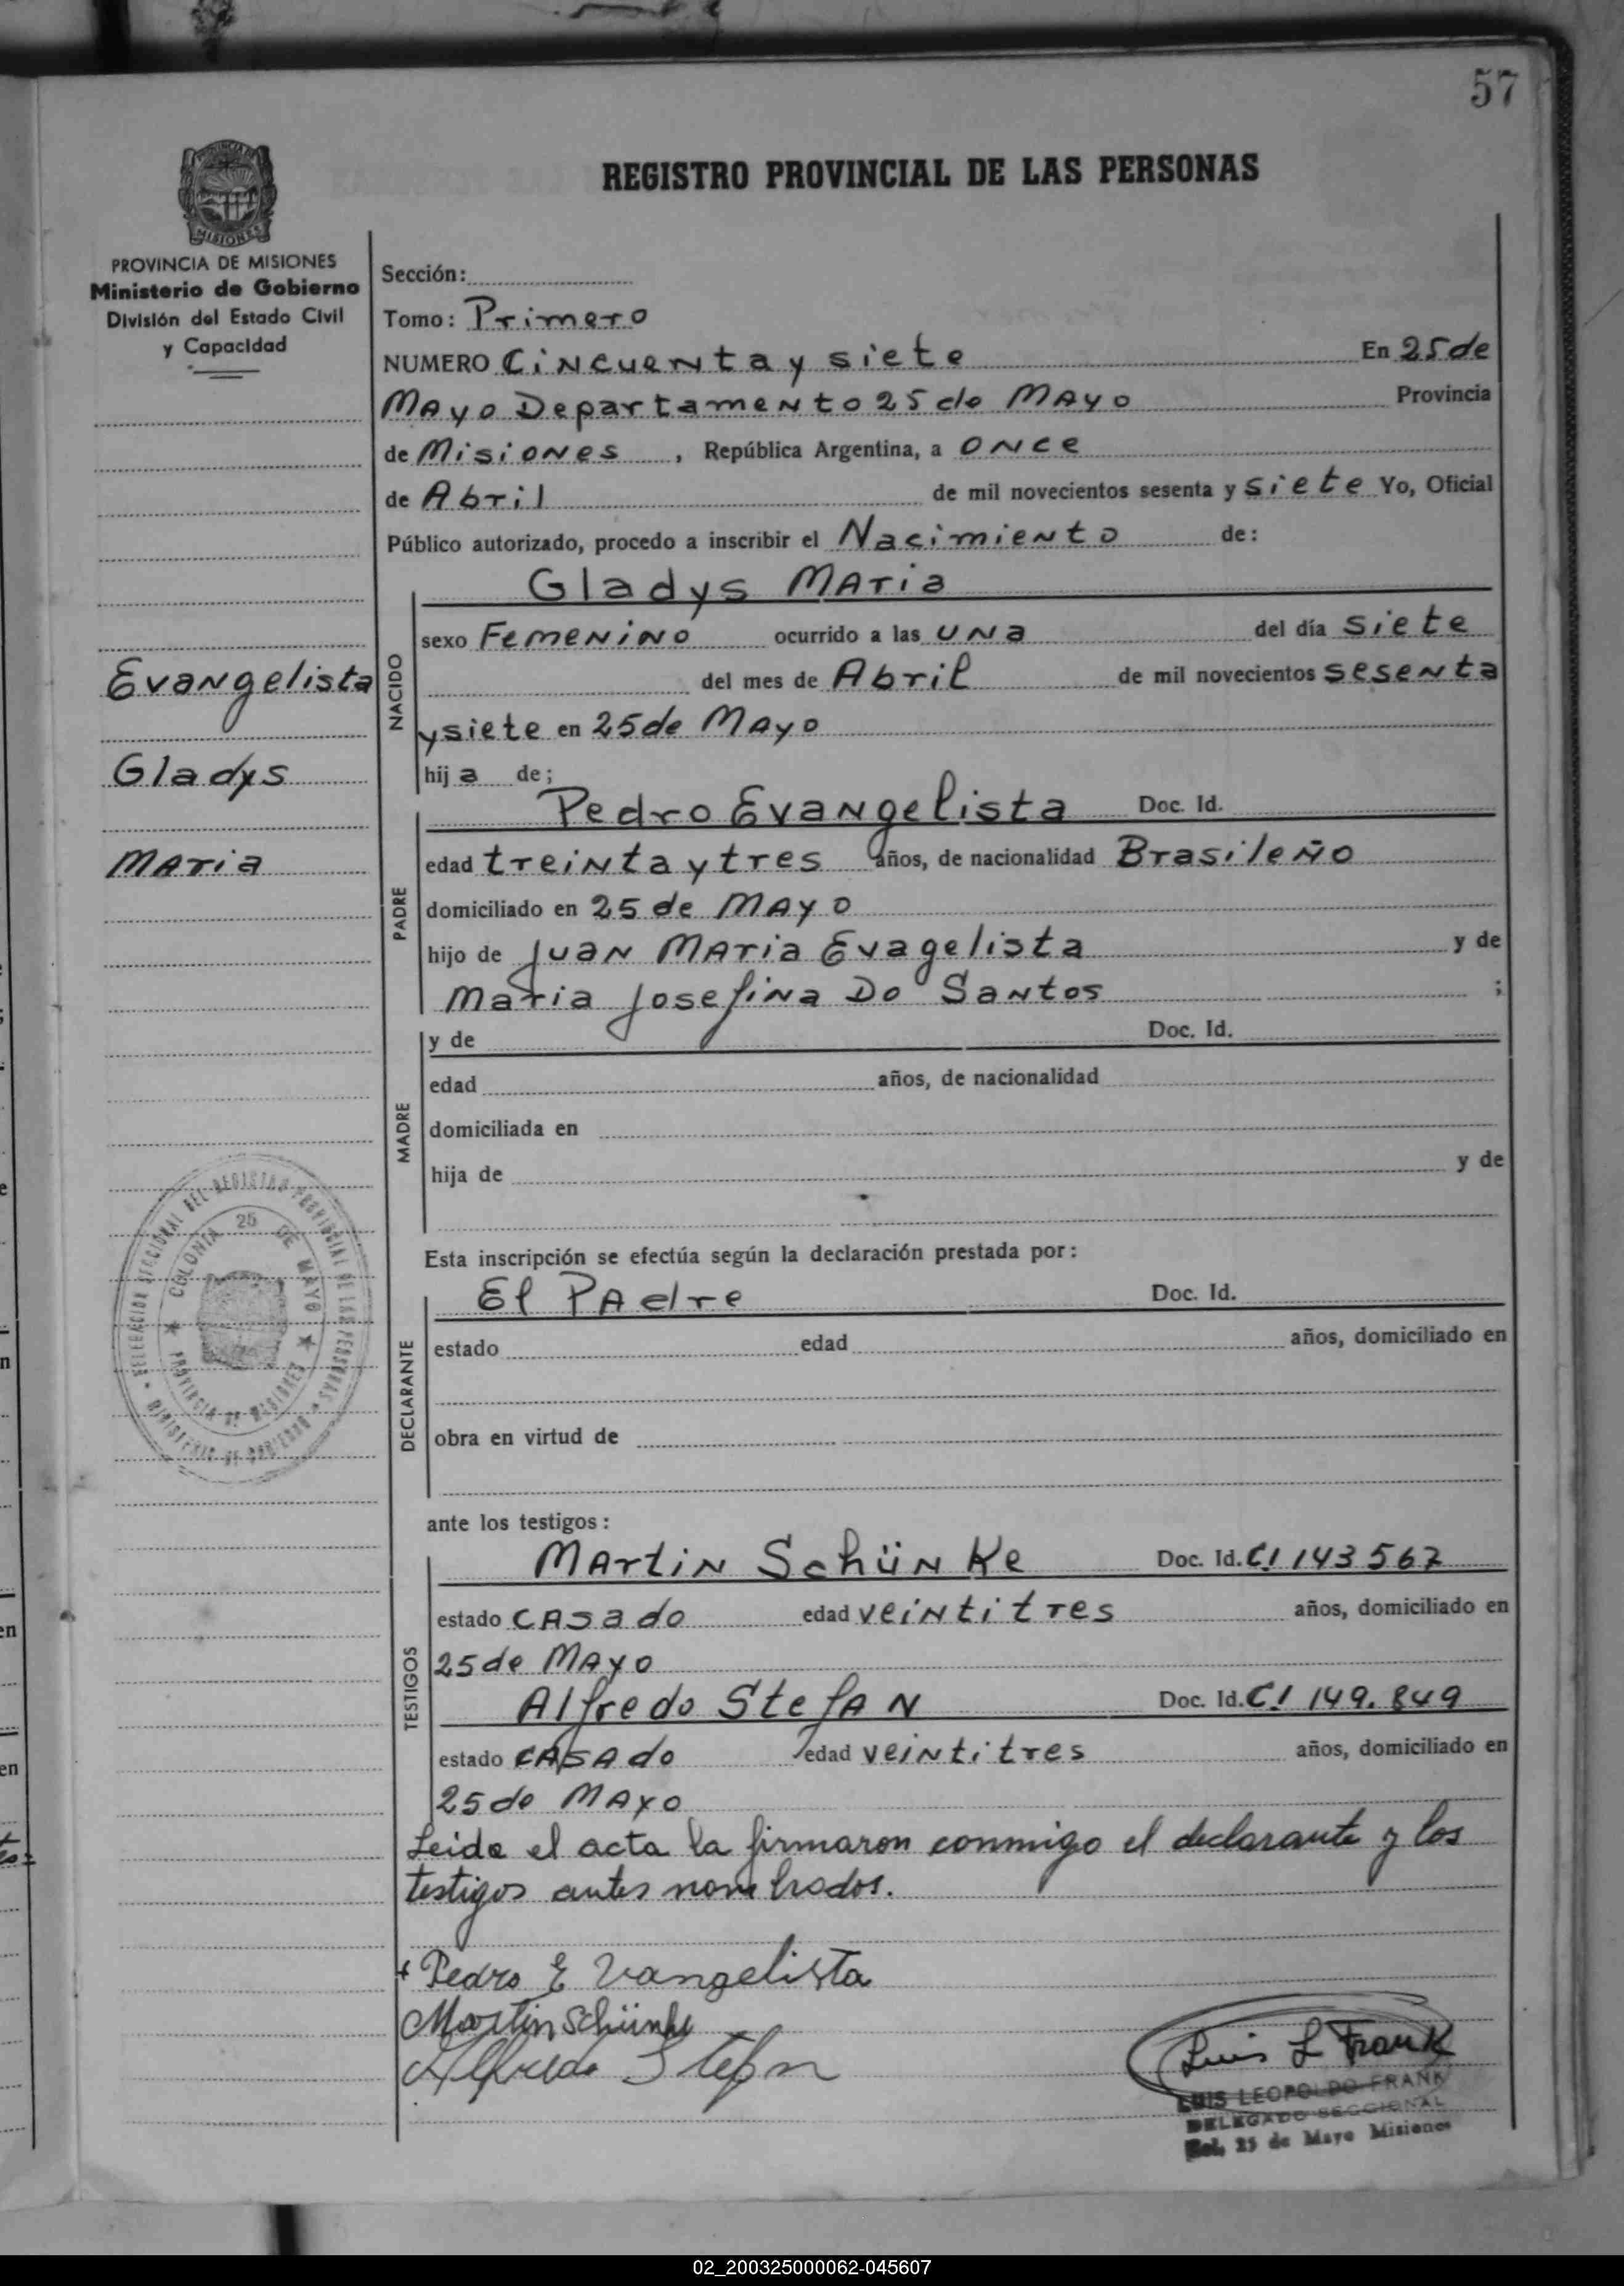 57
REGISTRO PROVINCIAL DE LAS PERSONAS
PROVINCIA DE
MISIONES
PROVINCIA DE MISIONES
Ministerio de Gobierno
División del Estado Civil
y Capacidad
Evangelista
Gladys
Maria
DELEGACION SECCIONAL DEL REGISTRO PROVINCIAL DE LAS PERSONAS
MINISTERIO DE GOBIERNO
COLONIA 25 DE MAYO
PROVINCIA DE MISIONES
Sección:
Tomo: Primero
NUMERO Cincuenta y siete En 25 de
Mayo Departamento 25 de Mayo Provincia
de Misiones, República Argentina, a once
de Abril de mil novecientos sesenta y siete Yo, Oficial
Público autorizado, procedo a inscribir el Nacimiento de:
NACIDO
Gladys Maria
sexo Femenino ocurrido a las una del día siete
del mes de Abril de mil novecientos sesenta
y siete en 25 de Mayo
hija de;
PADRE
Pedro Evangelista Doc. Id.
edad treinta y tres años, de nacionalidad Brasileño
domiciliado en 25 de Mayo
hijo de Juan Maria Evagelista y de
Maria Josefina Do Santos ;
MADRE
y de Doc. Id.
edad años, de nacionalidad
domiciliada en
hija de y de
Esta inscripción se efectúa según la declaración prestada por:
DECLARANTE
El Padre Doc. Id.
estado edad años, domiciliado en
obra en virtud de
ante los testigos:
TESTIGOS
Martin Schünke Doc. Id. C! 143567
estado casado edad veintitres años, domiciliado en
25 de Mayo
Alfredo Stefan Doc. Id. C! 149.849
estado casado edad veintitres años, domiciliado en
25 de Mayo
Leida el acta la firmaron conmigo el declarante y los
testigos antes nombrados.
Pedro E Vangelista
Martin Schünke
Alfredo Stefan
Luis L Frank
LUIS LEOPOLDO FRANK
DELEGADO SECCIONAL
Col. 25 de Mayo Misiones
02_200325000062-045607